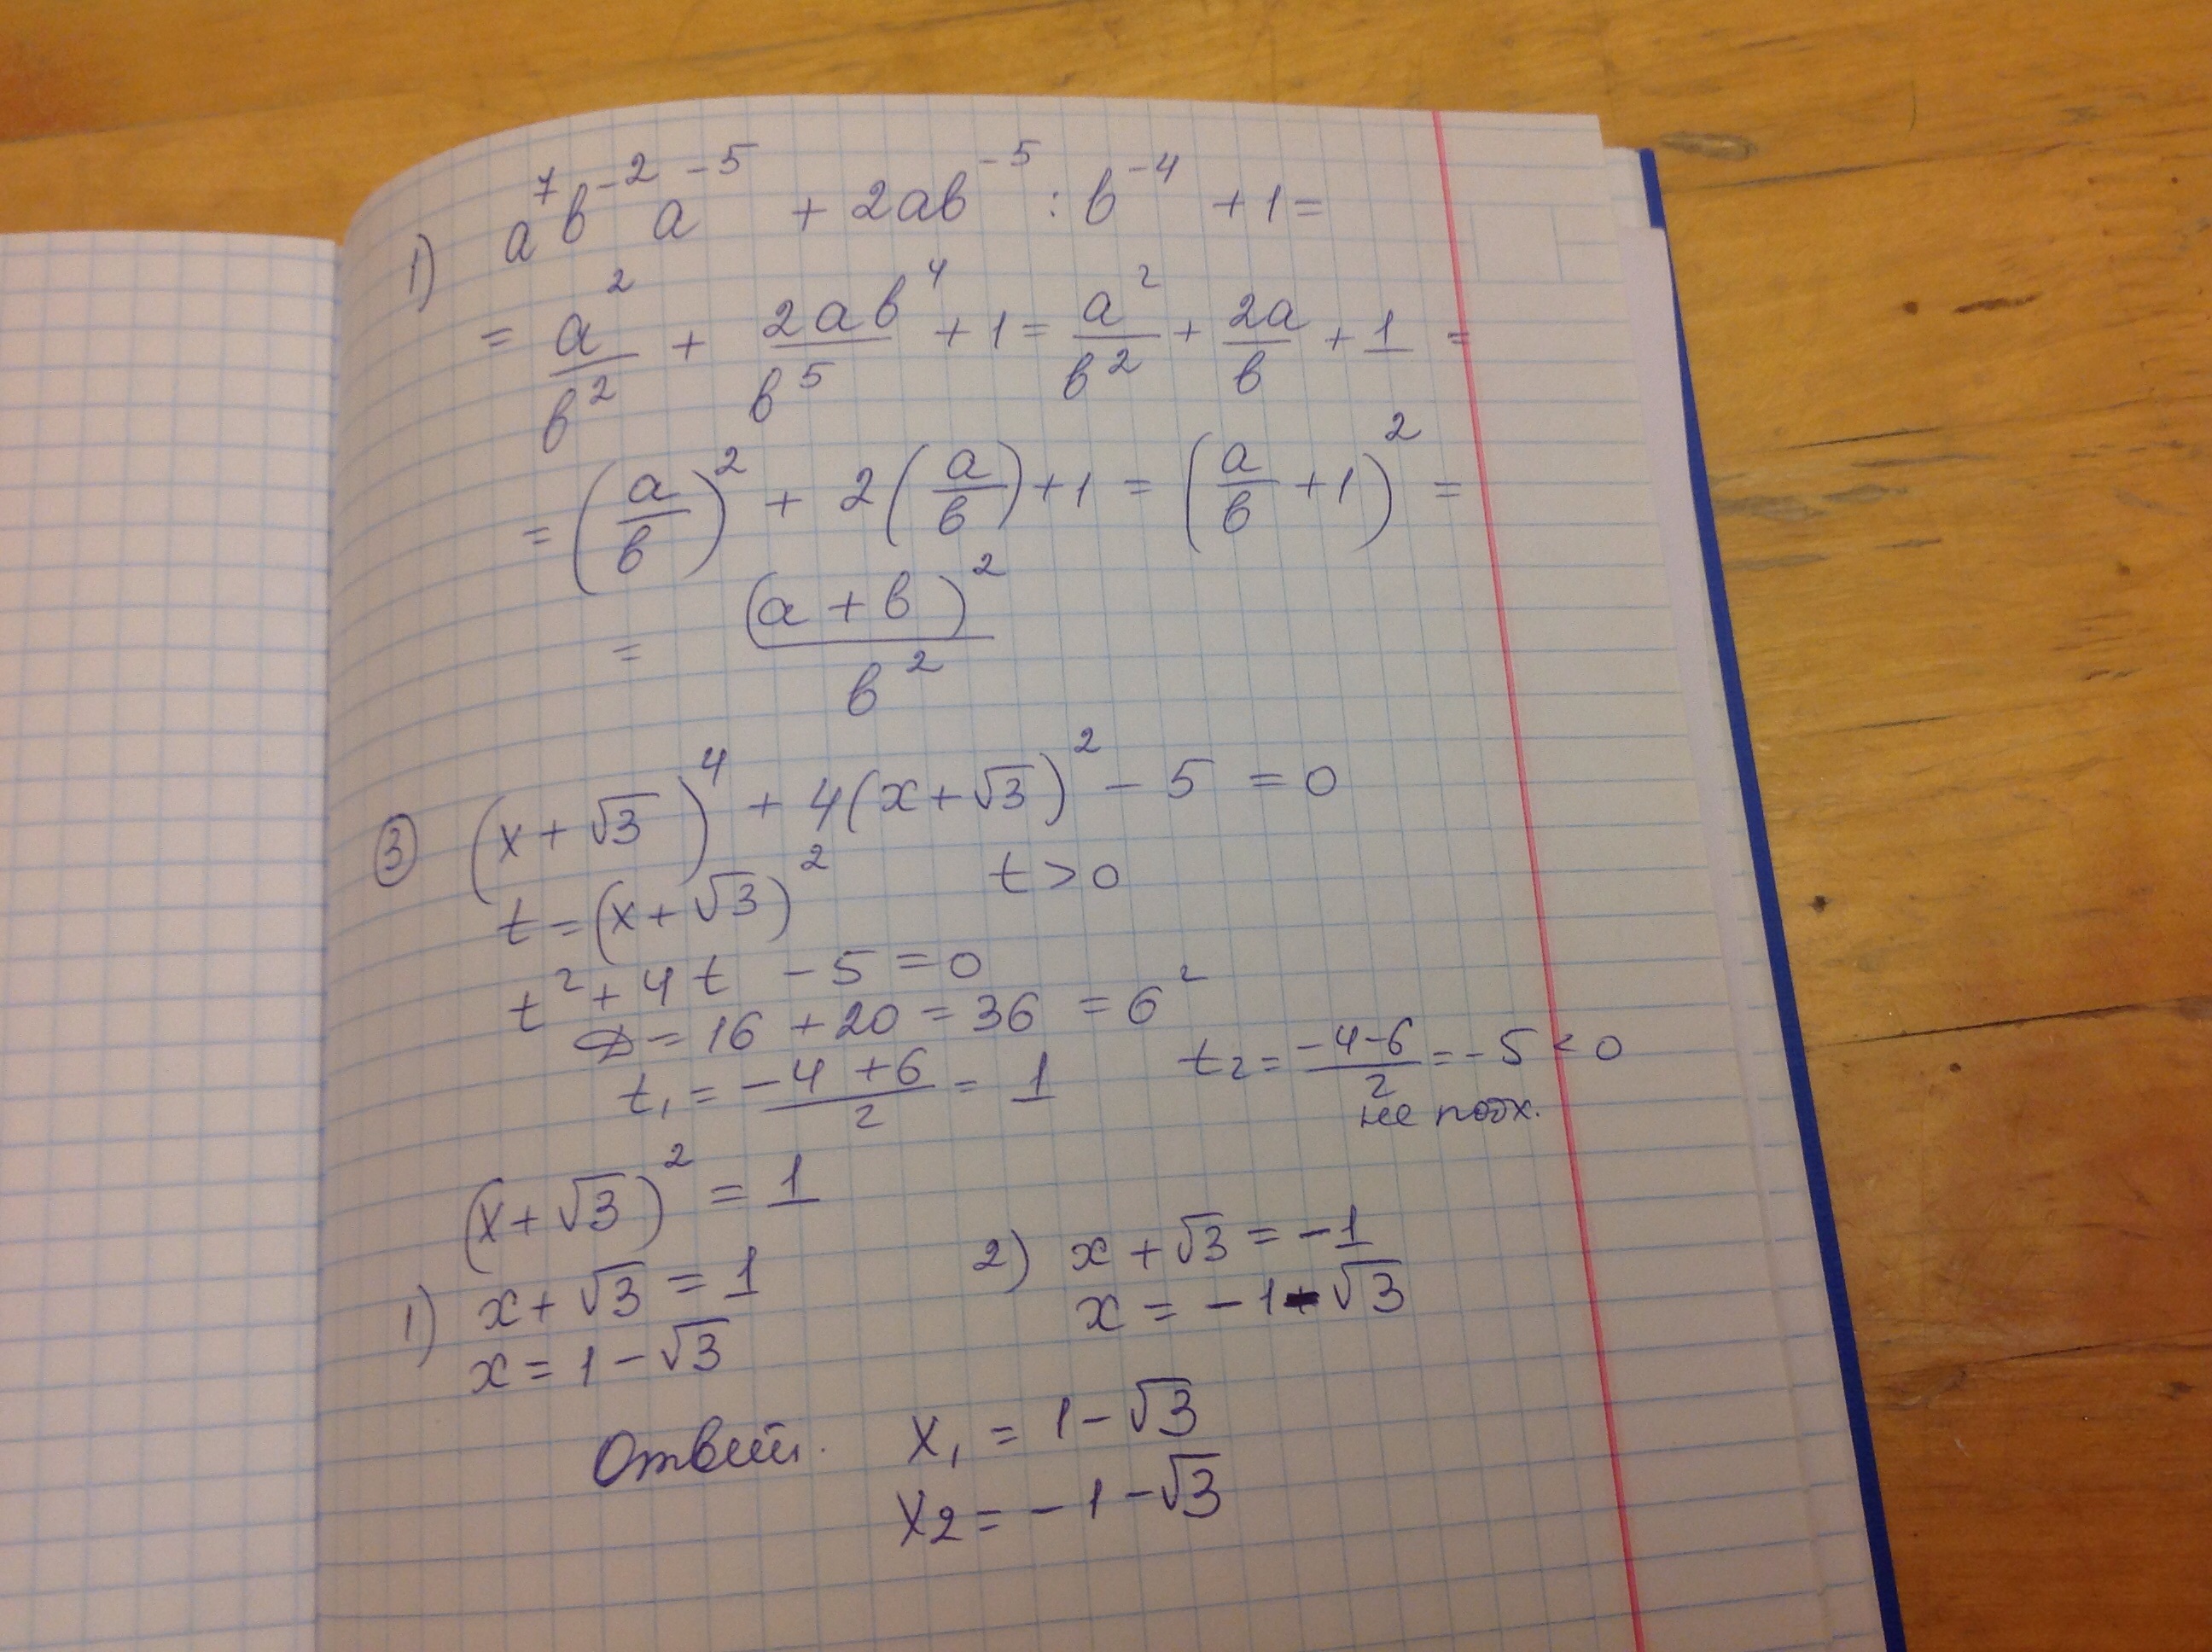 1) a⁷b⁻²a⁻⁵ + 2ab⁻⁵ : b⁻⁴ + 1 =
= a²/b² + 2ab⁴/b⁵ + 1 = a²/b² + 2a/b + 1 =
= (a/b)² + 2(a/b) + 1 = (a/b + 1)² =
= (a + b)²/b²
③ (x + √3)⁴ + 4(x + √3)² − 5 = 0
t = (x + √3)² t > 0
t² + 4t − 5 = 0
D = 16 + 20 = 36 = 6²
t₁ = (−4 + 6)/2 = 1 t₂ = (−4−6)/2 = −5 < 0
не подх.
(x + √3)² = 1
1) x + √3 = 1 2) x + √3 = −1
x = 1 − √3 x = −1 − √3
Ответ. x₁ = 1 − √3
x₂ = −1 − √3